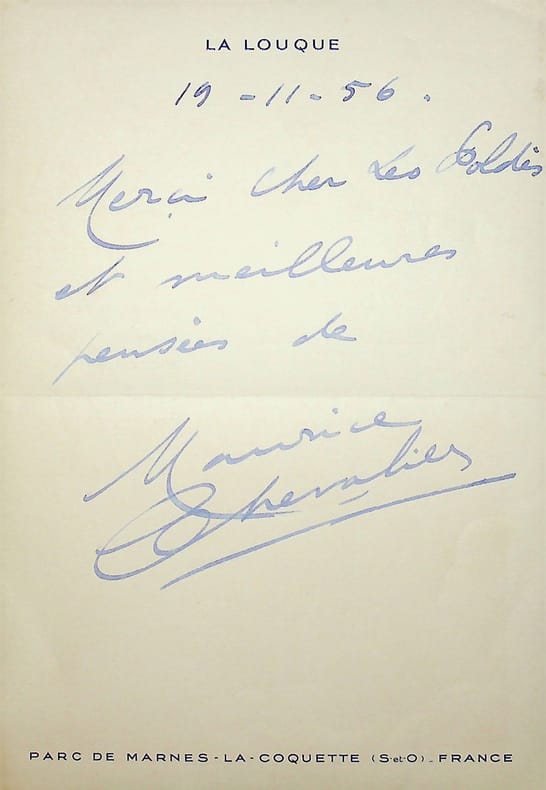 LA LOUQUE
19-11-56.
Merci cher Leo Poldès
et meilleures
pensées de
Maurice
Chevalier
PARC DE MARNES-LA-COQUETTE (S-et-O)_FRANCE